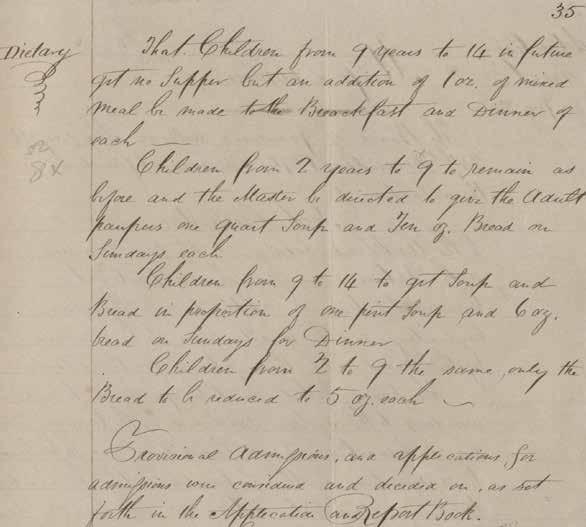 35
Dietary
That Children from 9 years to 14 in future
get no Supper but an addition of 1 oz. of mixed
meal be made to the Breackfast and Dinner of
each
Children from 2 years to 9 to remain as
before and the Master be directed to give the Adult
paupers one quart Soup and Ten oz. Bread on
Sundays each
Children from 9 to 14 to get Soup and
Bread in proportion of one pint Soup and 6 oz.
bread on Sundays for Dinner
Children from 2 to 9 the same, only the
Bread to be reduced to 5 oz. each
Provisional Admissions, and applications for
admissions were considered and decided on, as set
forth in the Application and Report Book.